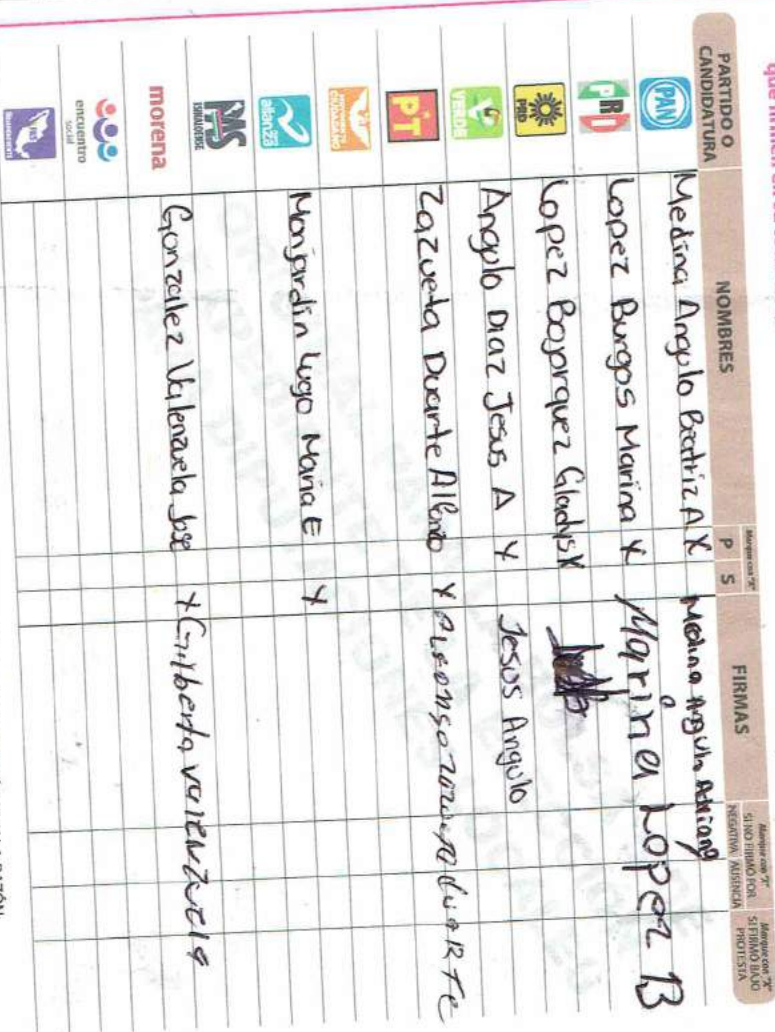 PARTIDO O CANDIDATURA
NOMBRES
Marque con "X"
P S
FIRMAS
Marque con "X" SI NO FIRMÓ POR NEGATIVA AUSENCIA
Marque con "X" SI FIRMÓ BAJO PROTESTA
PAN Medina Angulo Beatriz A X Medina Angulo Adriana
PRI Lopez Burgos Marina X Marina Lopez B
PRD Lopez Bojorquez Gladys X
VERDE Angulo Diaz Jesus A X Jesus Angulo
PT Zazueta Duarte Alfonso X
alianza Monjardin Lugo Maria E X
PAS SINALOENSE
morena Gonzalez Valenzuela Jose X Gilberta Valenzuela
encuentro social